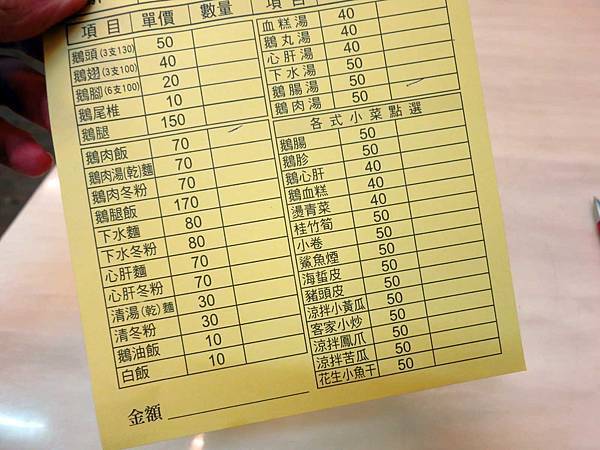 項目 單價 數量
鵝頭(3支130) 50
鵝翅(3支100) 40
鵝腳(6支100) 20
鵝尾椎 10
鵝腿 150
鵝肉飯 70
鵝肉湯(乾)麵 70
鵝肉冬粉 70
鵝腿飯 170
下水麵 80
下水冬粉 80
心肝麵 70
心肝冬粉 70
清湯(乾)麵 30
清冬粉 30
鵝油飯 10
白飯 10
金額
項目
血糕湯 40
鵝丸湯 40
心肝湯 40
下水湯 50
鵝腸湯 50
鵝肉湯 50
各式小菜點選
鵝腸 50
鵝胗 50
鵝心肝 40
鵝血糕 40
燙青菜 40
桂竹筍 50
小卷 50
鯊魚煙 50
海蜇皮 50
豬頭皮 50
涼拌小黃瓜 50
客家小炒 50
涼拌鳳爪 50
涼拌苦瓜 50
花生小魚干 50